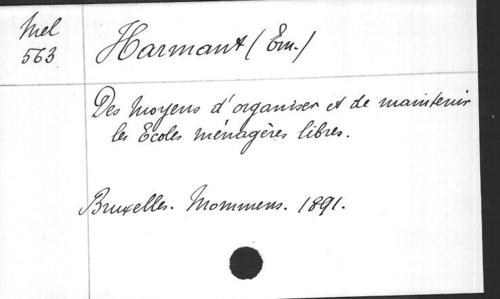 Mel
563
Harmant (Em.)
Des moyens d'organiser et de maintenir
les Ecoles ménagères libres.
Bruxelles. Mommens. 1891.